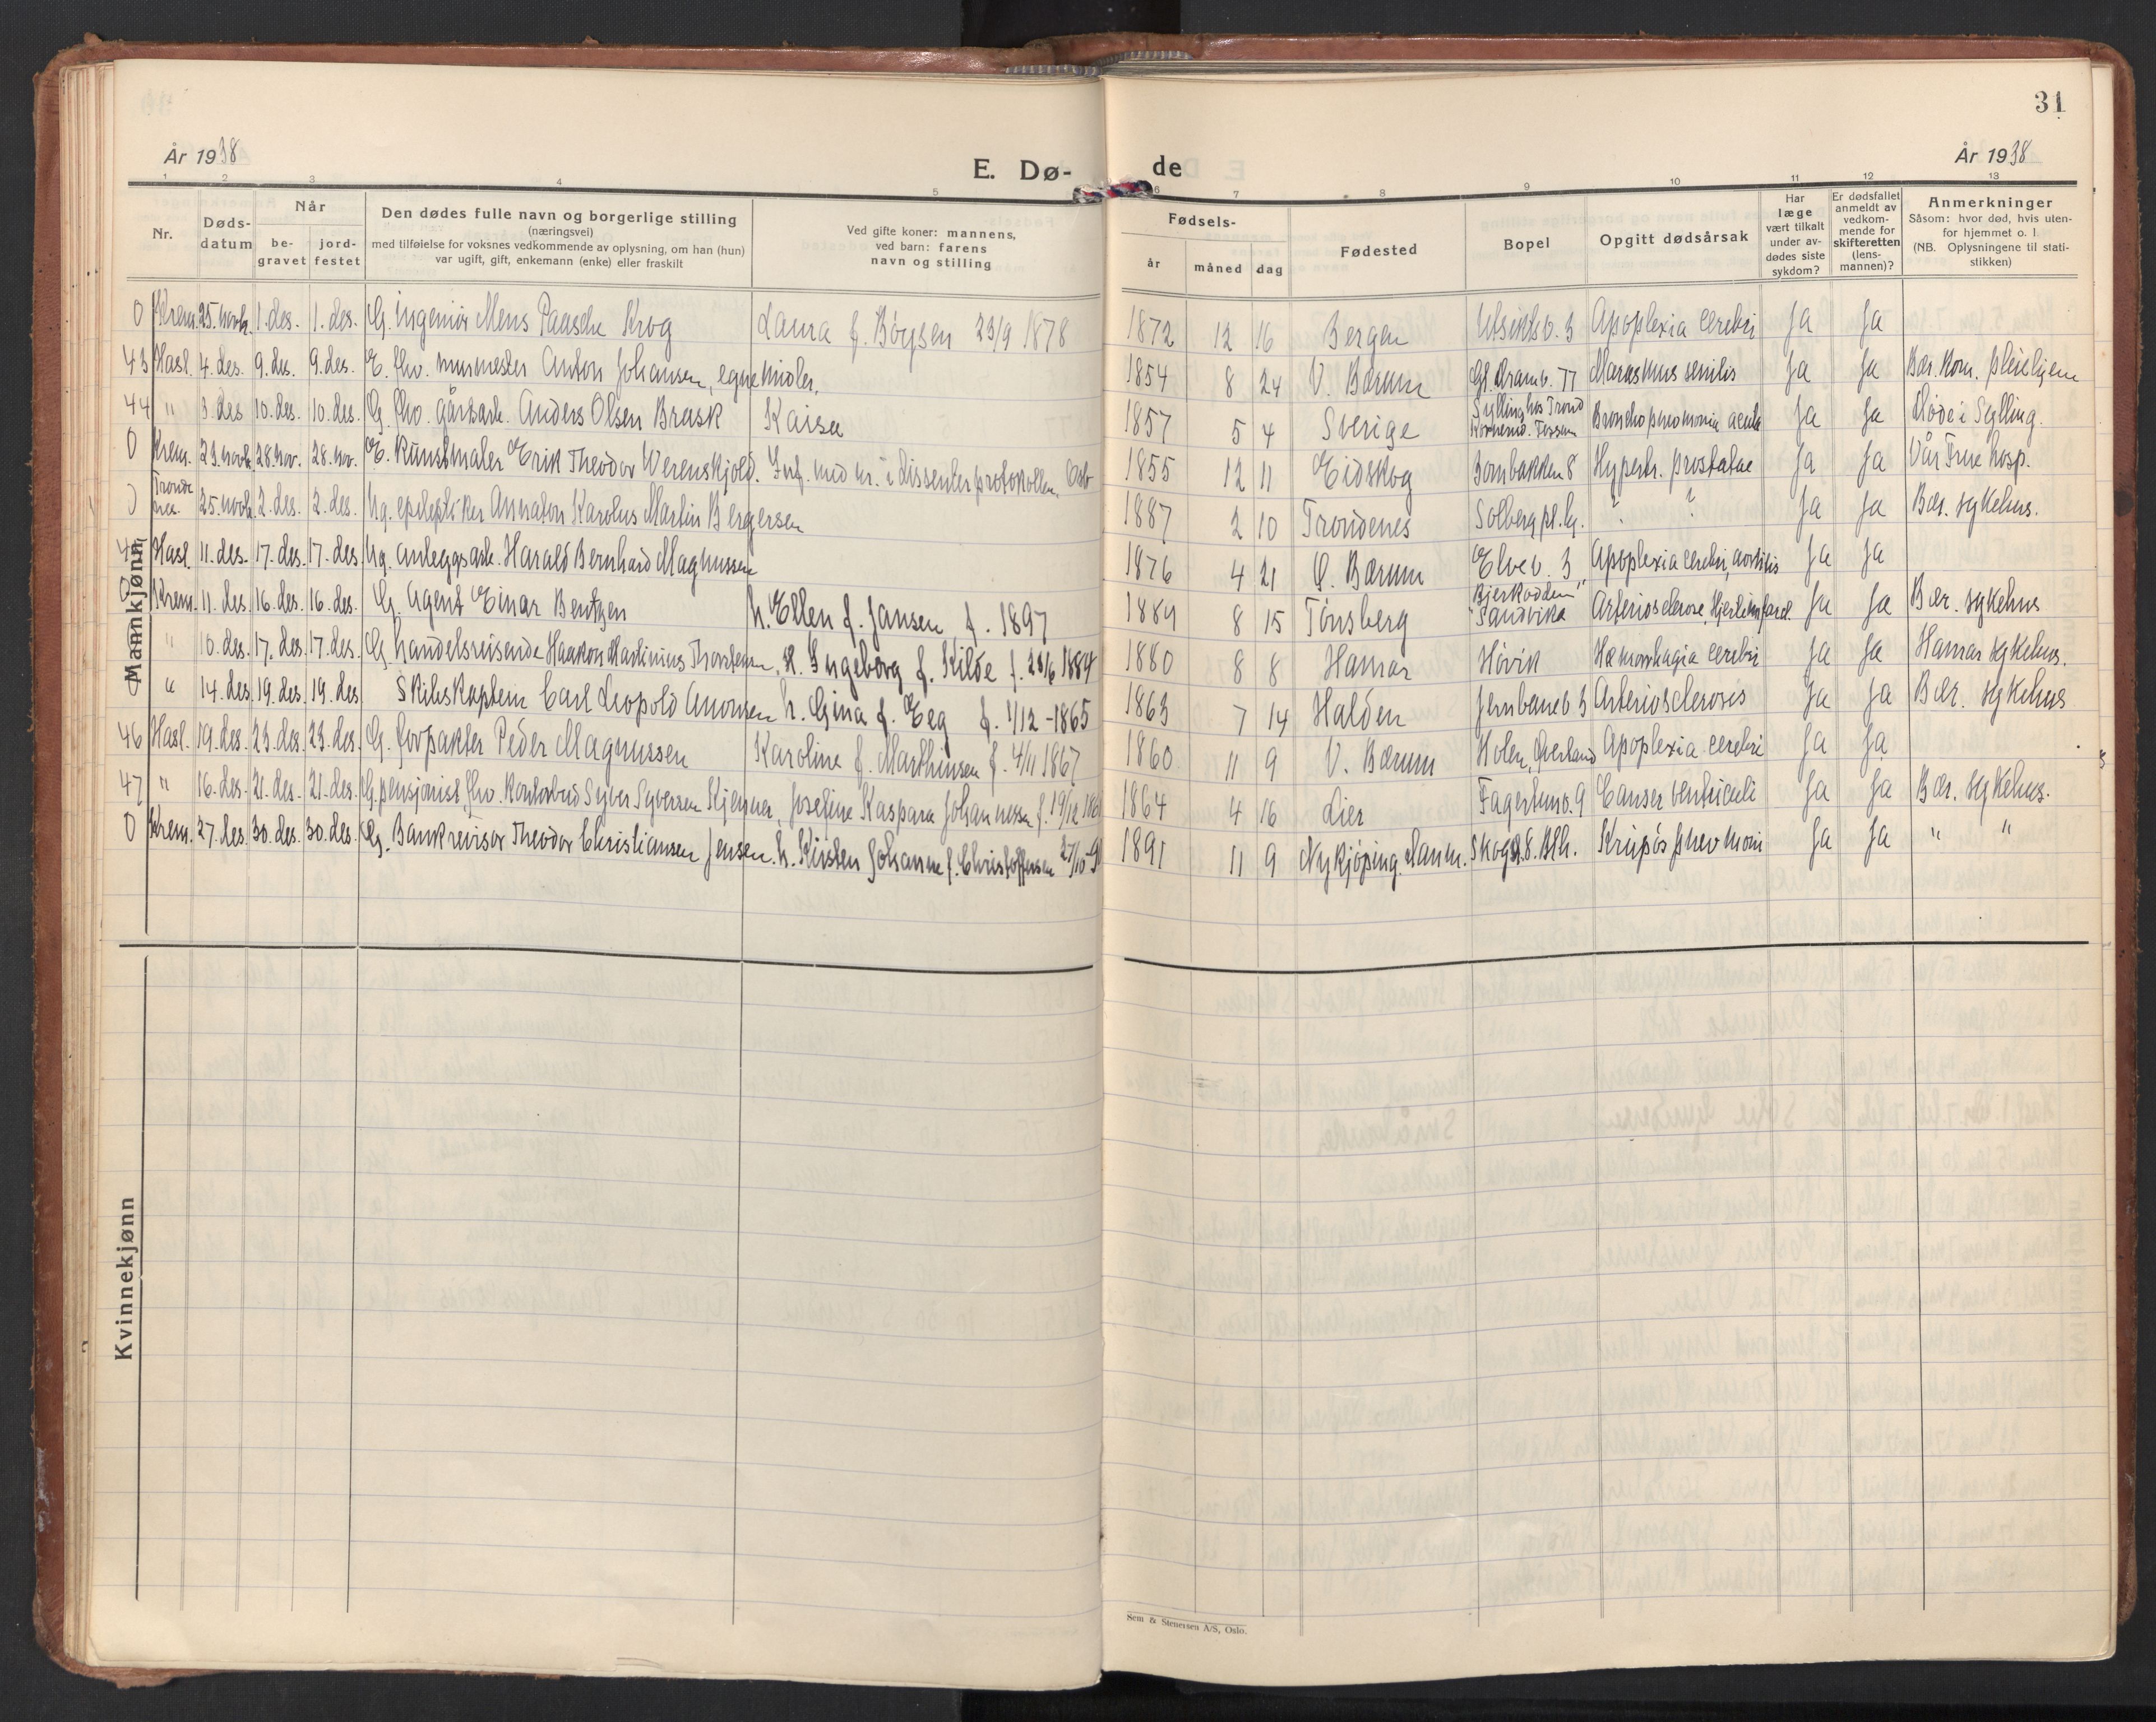 31
År 1938
E. Dø-
de
År 1938
1 2 3 4 5 6 7 8 9 10 11 12 13
Nr.
Døds-
datum
Når
be-
gravet
jord-
festet
Den dødes fulle navn og borgerlige stilling
(næringsvei)
med tilføielse for voksnes vedkommende av oplysning, om han (hun)
var ugift, gift, enkemann (enke) eller fraskilt
Ved gifte koner: mannens,
ved barn: farens
navn og stilling
Fødsels-
år
måned
dag
Fødested
Bopel
Opgitt dødsårsak
Har
læge
vært tilkalt
under av-
dødes siste
sykdom?
Er dødsfallet
anmeldt av
vedkom-
mende for
skifteretten
(lens-
mannen)?
Anmerkninger
Såsom: hvor død, hvis uten-
for hjemmet o. l.
(NB. Oplysningene til stati-
stikken)
Mannkjønn
0 Krem. 25. novb. 1. des. 1. des. G. Ingeniør Mens Paasche Krog Laura f. Børysen 23/9 1878 1872 12 16 Bergen Utsiktsv. 3 Apoplexia cerebri Ja Ja
43 Hasl. 4. des. 9. des. 9. des. E. fhv. murmester Anton Johansen, egne midler, 1854 8 24 V. Bærum Gl. Dramv. 77 Maraskmus senilis Ja Ja Bær. kom. pleiehjem
44 " 3. des 10. des. 10. des. G. fhv. gårdsarb. Anders Olsen Brask Kaisa 1857 5 4 Sverige Syllinghos Trond Bronchopneumonia acuta Ja Ja Døde i Sylling.
0 Krem. 23. novb. 28. nov. 28. nov. E. Kunstmaler Erik Theodor Werenskjold. Inf. med nr. i dissenterprotokollen, Oslo 1855 12 11 Eidskog Bombakken 8 Hypertr. prostatae Ja Ja Vår Frue hosp.
0 25. novb. 2. des. 2. des. Ug. epileptiker Annaton Karolus Martin Bergersen 1887 2 10 Trondenes Solberg pl. hj. ? ? Ja Ja Bær. sykehus.
Hasl. 11. des. 17. des. 17. des. Ug. anleggsarb. Harald Bernhard Magnussen 1876 4 21 Ø. Bærum Elvev. 3 Apoplexia cerebri, aortitis Ja Ja
Krem. 11. des. 16. des. 16. des. G. Agent Einar Bentzen h. Ellen f. Jansen f. 1897 1889 8 15 Tønsberg "Bjerkodden" Sandvika Arteriosclerose, Ja Ja Bær. sykehus
" 10. des. 17. des. 17. des. G. handelsreisende Haakon Martinius Thorstensen, H. Ingeborg f. Kilde f. 23/6 1884 1880 8 8 Hamar Høvik Hæmorrhagia cerebri Ja Ja Hamar sykehus.
" 14. des. 19. des. 19. des. Skibskaptein Carl Leopold Anonsen h. Gina f. Eeg f. 1/12-1865 1863 7 14 Halden Jernbanev 3 Arteriosclerosis Ja Ja Bær. sykehus
46 Hasl. 19. des. 23. des. 23. des. G. forpakter Peder Magnussen Karoline f. Marthinsen f. 4/11 1867 1860 11 9 V. Bærum Holen, Øverland Apoplexia cerebri Ja Ja
47 " 16. des. 21. des. 21. des. G. pensjonist fhv. kontorbud Syver Syversen Kjenner, Josefine Kaspara Johannessen f. 19/12 1864 4 16 Lier Fagerlundv. 9 Canser ventriculi Ja Ja Bær. sykehus.
0 Krem. 27. des. 30. des. 30. des. G. Bankrevisor Theodor Christiansen Jensen. h. Kirsten Johanne f. Christoffersen 27/10- 1891 11 9 Nykjøping. Danm. Skogv. 8. Blh. Krupøs pnevmoni Ja Ja " "
Kvinnekjønn
Sem & Stenersen A/S, Oslo.